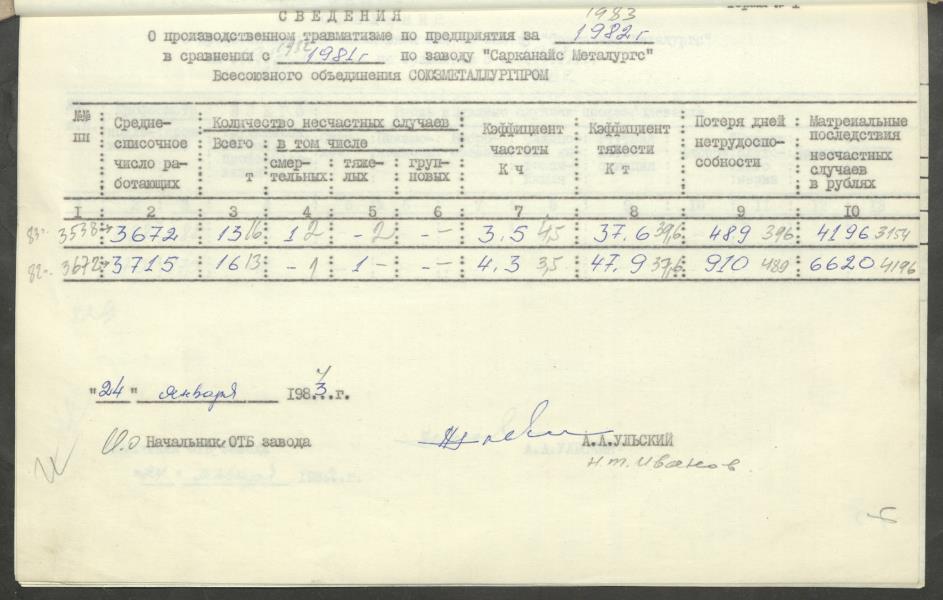 СВЕДЕНИЯ
1983
О производственном травматизме по предприятия за 1982 г
1982
в сравнении с 1981 г по заводу "Сарканайс Металургс"
Всесоюзного объединения СОЮЗМЕТАЛЛУРГПРОМ
№№ пп : Средне-списочное число ра-ботающих : Количество несчастных случаев : Кэффициент частоты К ч : Кэффициент тяжести К т : Потеря дней нетрудоспо-собности : Матреиальные последствия несчастных случаев в рублях
Всего т : в том числе
смер-тельных : тяже-лых : груп-новых
1 : 2 : 3 : 4 : 5 : 6 : 7 : 8 : 9 : 10
83- 3538 : 3672 : 13 16 : 1 2 : - 2 : - - : 3.5 4,5 : 37.6 39,6 : 489 396 : 4196 3154
82- 3672 : 3715 : 16 13 : - 1 : 1 - : - - : 4.3 3,5 : 47.9 37,6 : 910 489 : 6620 4196
4
"24" января 1983 г.
И.о Начальник ОТБ завода А.А.УЛЬСКИЙ
Н.т. Иванов.